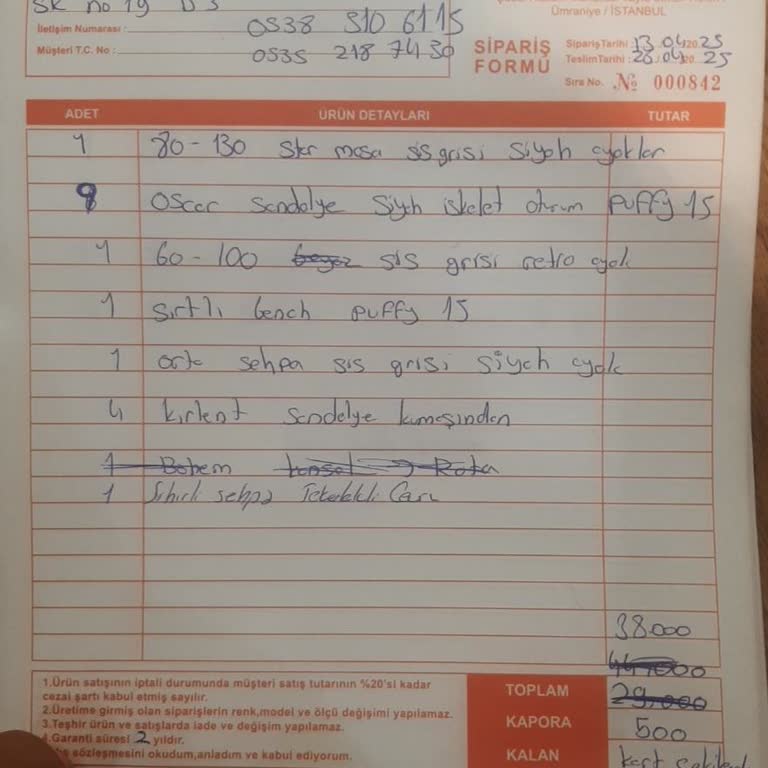 Sk no 19 D 3
Ümraniye / İSTANBUL
İletişim Numarası : 0538 310 6115
Müşteri T.C. No : 0535 218 7430
SİPARİŞ FORMU
Sipariş Tarihi : 13.04.2025
Teslim Tarihi : 28.04.2025
Sıra No. № 000842
ADET ÜRÜN DETAYLARI TUTAR
1 80-130 masa sis grisi siyah ayaklar
8 Oscar sandalye siyah iskelet oturum puffy 15
1 60-100 beyaz sis grisi retro ayak
1 sırtlı bench puffy 15
1 orta sehpa sis grisi siyah ayak
4 kırlent sandalye kumaşından
1 Bohem konsol → Rota
1 Sihirli sehpa Tekerlekli
38.000
44.000
TOPLAM 29.000
KAPORA 500
KALAN kart
1.Ürün satışının iptali durumunda müşteri satış tutarının %20'si kadar
cezai şartı kabul etmiş sayılır.
2.Üretime girmiş olan siparişlerin renk,model ve ölçü değişimi yapılamaz.
3.Teşhir ürün ve satışlarda iade ve değişim yapılamaz.
4.Garanti süresi 2 yıldır.
sözleşmesini okudum,anladım ve kabul ediyorum.